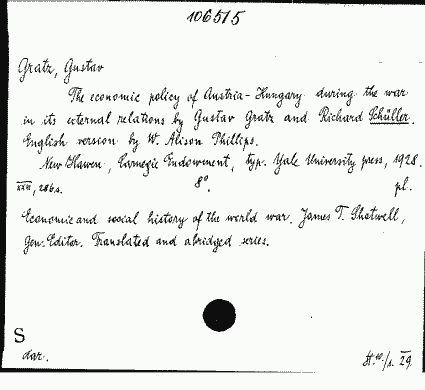 106515
Gratz, Gustav
The economic policy of Austria-Hungary during the war
in its external relations by Gustav Gratz and Richard Schüller.
English version by W. Alison Phillips.
New Haven, Carnegie Endowment, typ. Yale University press, 1928.
286 s. 8°. pl.
Economic and social history of the world war. James T. Shotwell,
Gen. Editor. Translated and abridged series.
S
dar. 29.